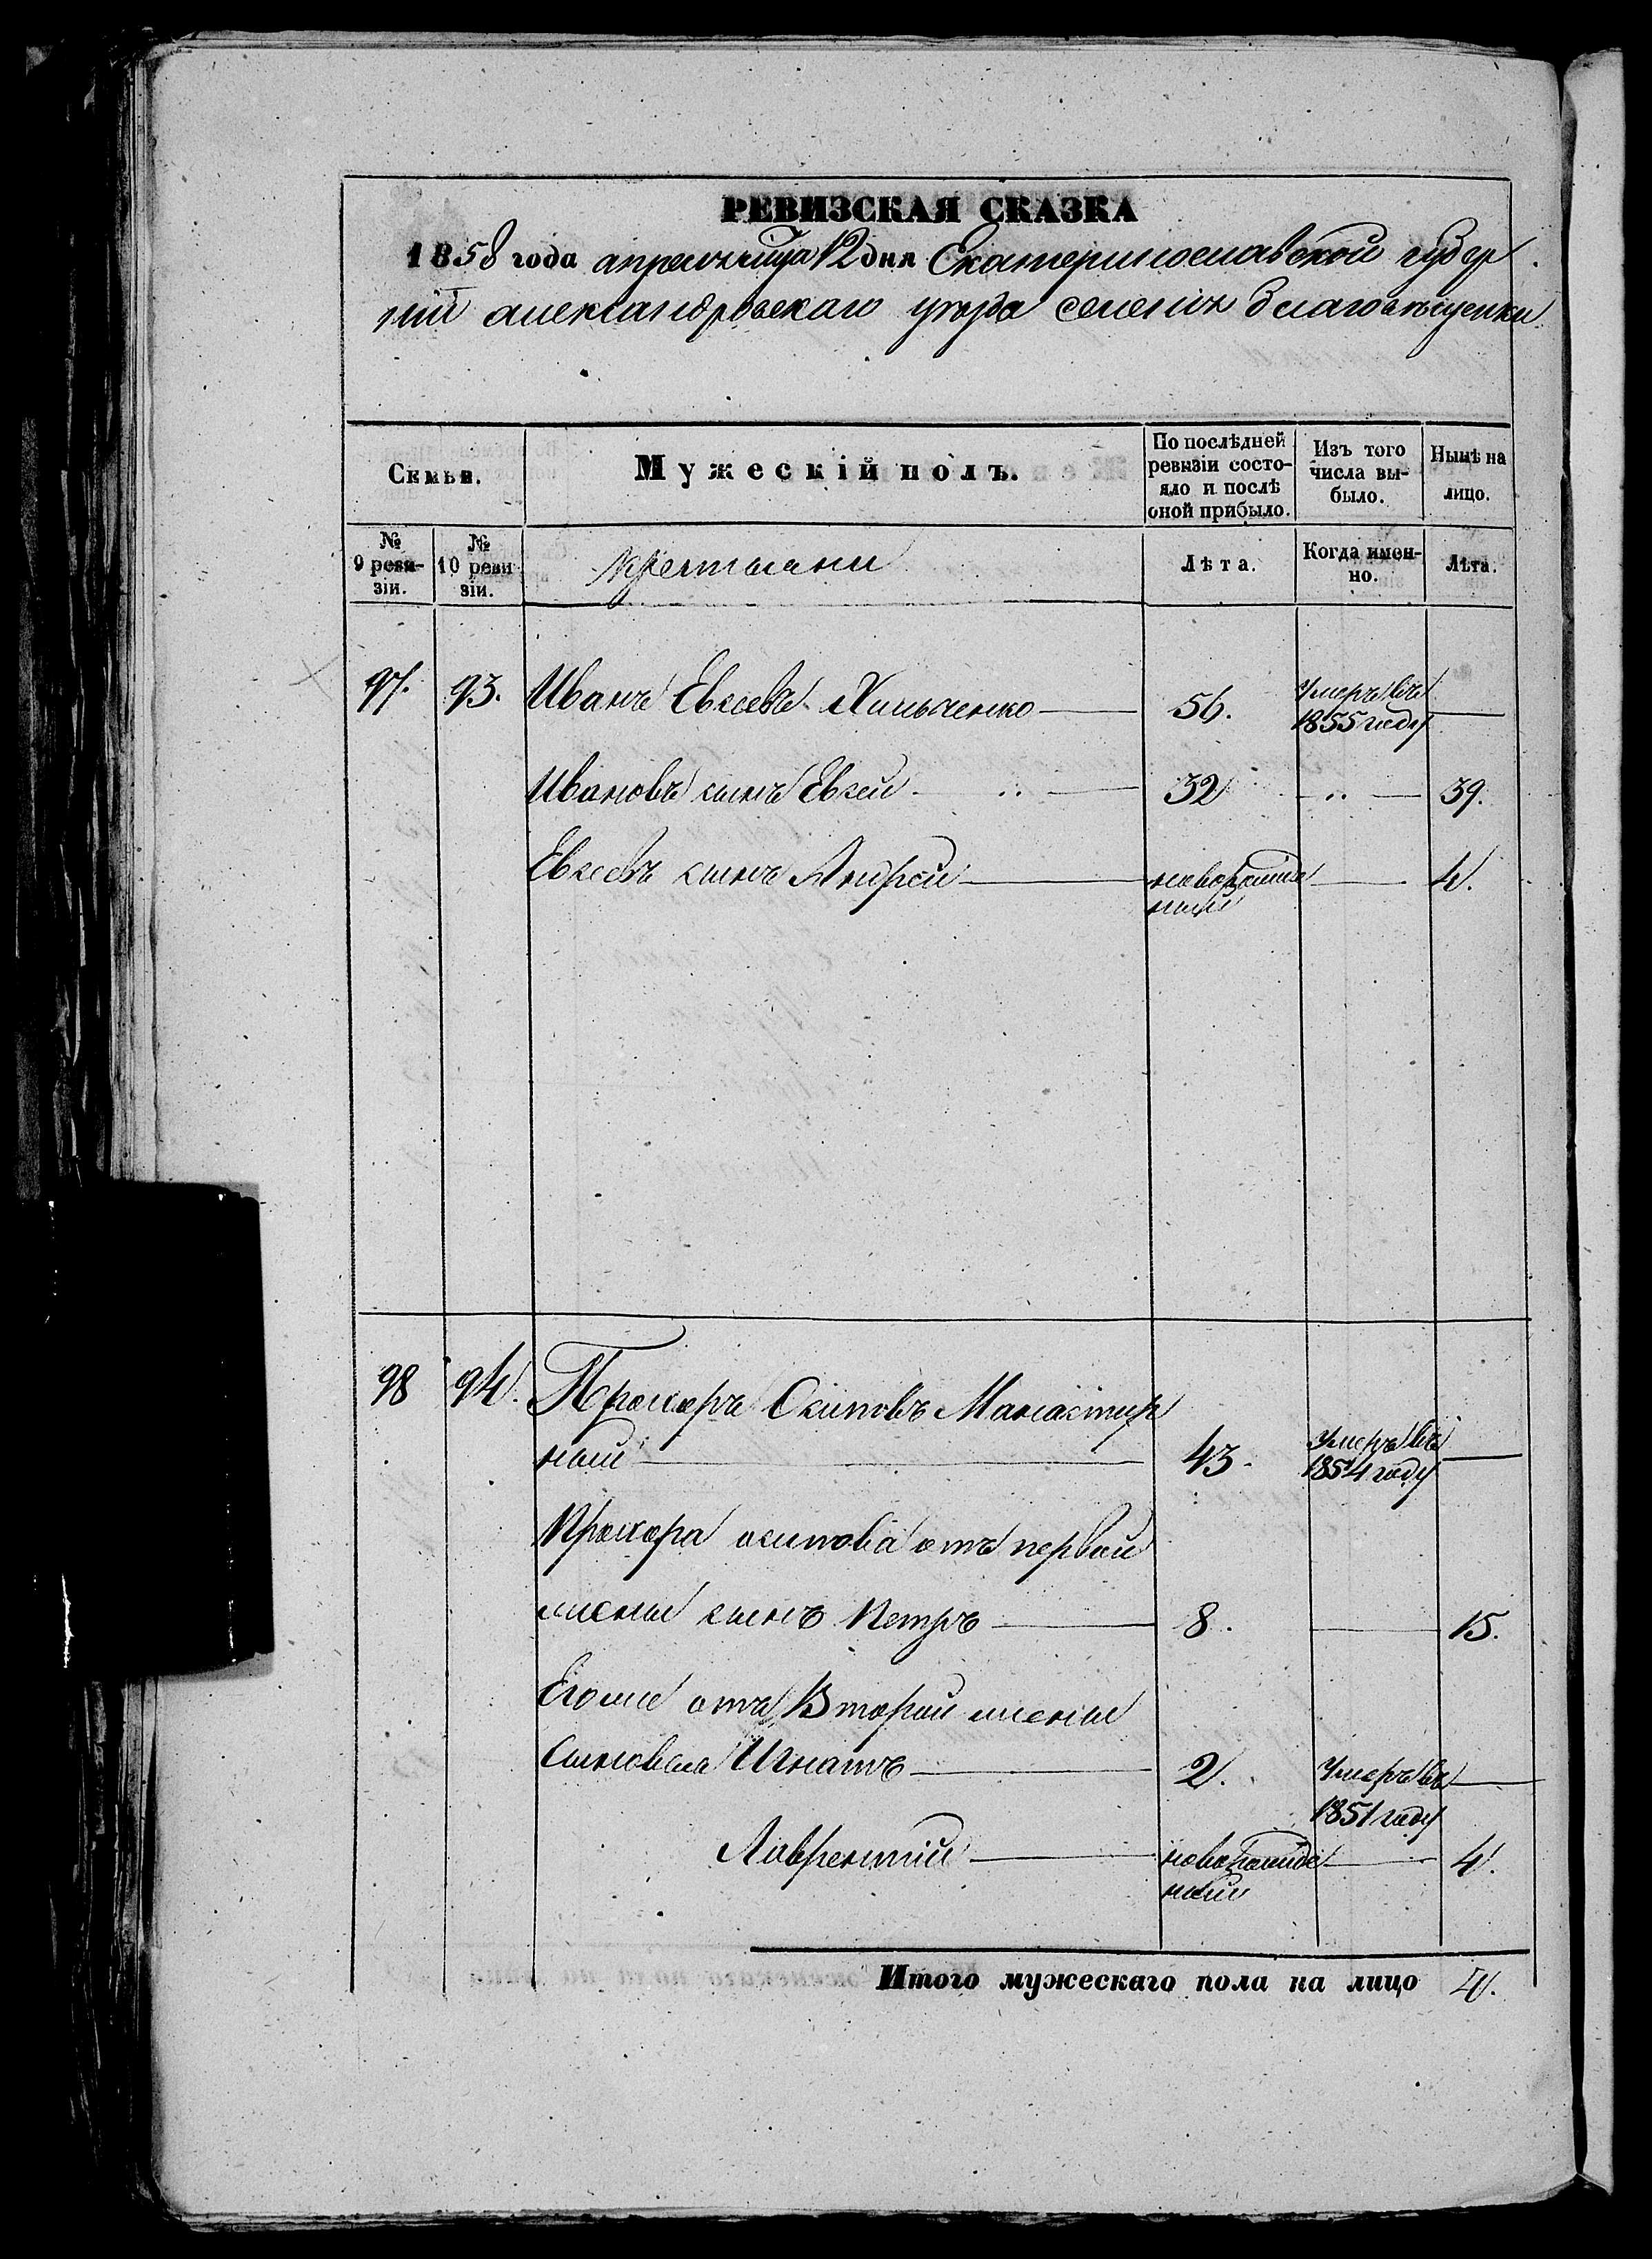 РЕВИЗСКАЯ СКАЗКА
1858 года апреля мца 12 дня Екатеринославской губер
ніи александровскаго уезда селенія благовѣщенки
Семьи.
Мужескій полъ.
По послѣдней ревизіи состояло и послѣ оной прибыло.
Изъ того числа выбыло.
Нынѣ на лицо.
№ 9 ревизіи.
№ 10 ревизіи.
крестьяни
Лѣта.
Когда именно.
Лѣта.
97. 93. Иванъ Евсеевъ Хильченко 56. Умеръ въ 1855 году
Ивановъ сынъ Евсей 32 39.
Евсеевъ сынъ Андрей новорожденный 4.
98 94. Прохоръ Осиповъ Манастыр
ный 43. Умеръ въ 1854 году
Прохора осипова отъ первой
жены сынъ Петръ 8. 15.
Его же отъ Второй жены
Сыновья Игнатъ 2. Умеръ въ 1851 году
Лаврентій новорожденный 4.
Итого мужескаго пола на лицо 4.